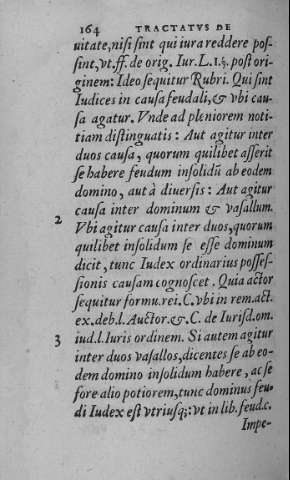 164 TRACTATVS DE
uitate, nisi sint qui iura reddere pos-
sint, vt. ff. de orig. Iur. L. 1. §. post ori-
ginem: Ideo sequitur Rubri. Qui sint
Iudices in causa feudali, & vbi cau-
sa agatur. Vnde ad pleniorem noti-
tiam distinguatis: Aut agitur inter
duos causa, quorum quilibet asserit
se habere feudum insolidū ab eodem
domino, aut à diuersis: Aut agitur
causa inter dominum & vasallum.
2 Vbi agitur causa inter duos, quorum
quilibet insolidum se esse dominum
dicit, tunc Iudex ordinarius posses-
sionis causam cognoscet. Quia actor
sequitur formu. rei. C. vbi in rem. act.
ex. deb. l. Auctor. &. C. de Iurisd. om.
3 iud. l. Iuris ordinem. Si autem agitur
inter duos vasallos, dicentes se ab eo-
dem domino insolidum habere, ac se
fore alio potiorem, tunc dominus feu-
di Iudex est vtriusq;: vt in lib. feud. c.
Impe-